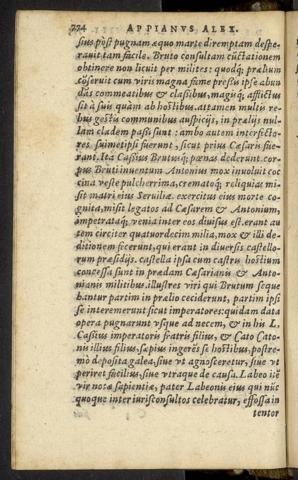 774 APPIANVS ALEX.
sius post pugnam æquo marte diremptam despe-
rauit tam facile. Bruto consultam cūctationem
obtinere non licuit per milites: quodq́; præhun
cōseruit cum viris magna fame pressis ipse abun
dās commeatibus & classibus, magisq́; afflictus
sit à suis quàm ab hostibus. attamen multis re
bus gestis communibus auspicijs, in prælijs nul-
lam cladem passi sunt: ambo autem interfecto-
res suimetipsi fuerunt, sicut prius Cæsaris fue-
rant. Ita Cassius Brutusq́; pœnas dederunt. cor-
pus Bruti inuentum Antonius mox inuoluit coc
cina veste pulcherrima, crematoq́; reliquias mi-
sit matri eius Seruiliæ. exercitus eius morte co-
gnita, misit legatos ad Cæsarem & Antonium,
impetrataq́; venia inter eos diuisus est. erant au
tem circiter quatuordecim milia, mox & illi de-
ditionem fecerunt, qui erant in diuersis castello-
rum præsidijs. castella ipsa cum castris hostium
concessa sunt in prædam Cæsarianis & Anto-
nianis militibus. illustres viri qui Brutum seque
bantur partim in prælio ceciderunt, partim ipsi
se interemerunt sicut imperatores: quidam data
opera pugnarunt vsque ad necem, & in his L.
Cassius imperatoris fratris filius, & Cato Cato-
nis illius filius, sæpius ingerēs se hostibus, postre-
mò deposita galea, siue vt agnosceretur, siue vt
periret facilius, siue vtraque de causa. Labeo itē
vir notæ sapientiæ, pater Labeonis eius qui nūc
quoque inter iurisconsultos celebratur, effossa in
tentor